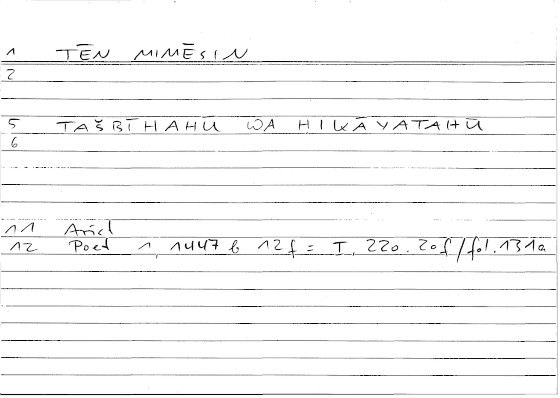 1 TĒN MIMĒSIN
2
5 TAŠBĪHAHŪ WA HIKĀYATAHŪ
6
11 Arist
12 Poet 1, 1447 b 12f = T, 220.20f/fol.131a